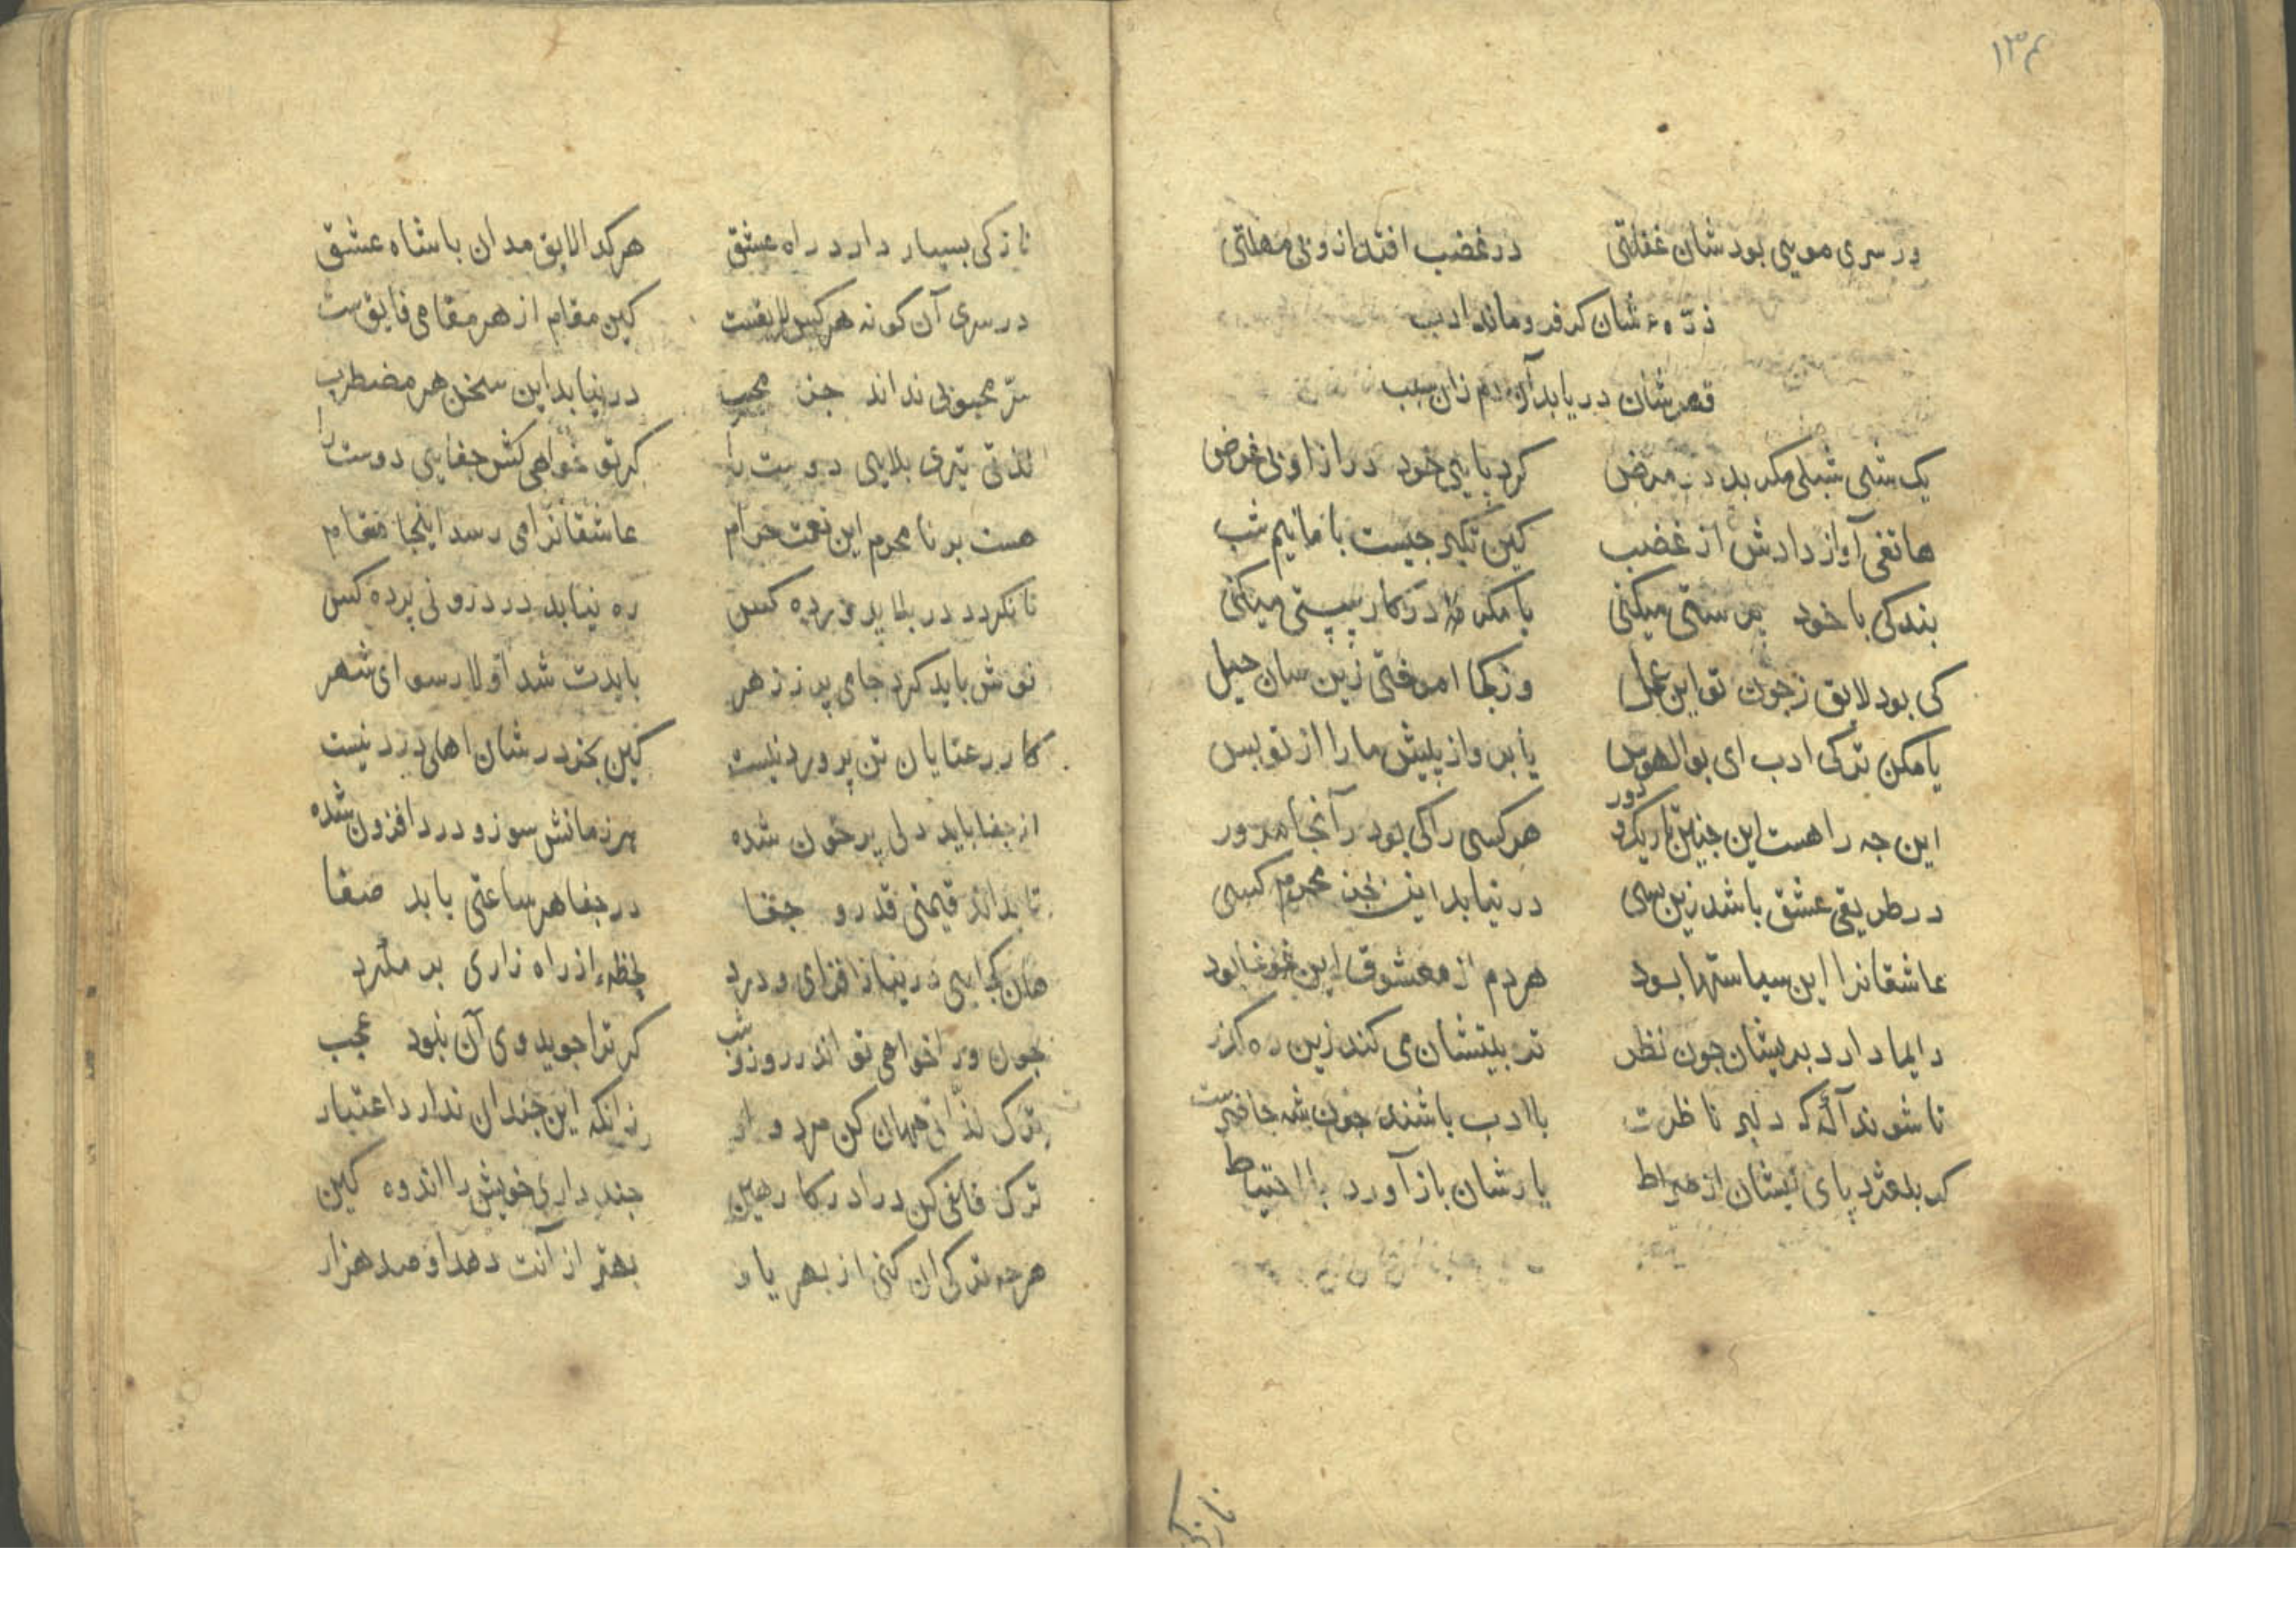 ۱۳۴
در سری مویی بود شان غفلتی درغضب افتد از وی مهلتی
ذرّهٔ شان کر فرو ماند ادب
قهرشان دریابد آن دم زان سبب
یک شبی شبلی مکر بد در مرض کرد پایی خود دراز او بی غرض
هاتفی آواز دادش از غضب کین تکبر جیست با ما نیم شب
بندکی با خود پرستی میکنی یا مکر در کار سستی میکنی
کی بود لایق زجون تو این عمل وز کجا اموختی زین سان حیل
یا مکن ترکی ادب ای بوالهوس یا برو از پیش ما را از تو بس
این جه راهست این جنین تاریک و دور هر کسی را کی بود آنجا مرور
در طریقی عشق باشد زین بسی در نیابد این جز محرم کسی
عاشقانرا این سیاستها بود هردم از معشوق این غوغا بود
دایما دارد بریشان جون نظر تربیتشان می کند زین ره کذر
تا شوند آکه که دلبر ناظرست باادب باشند جون شه حاضرست
کر بلغزد پای ایشان از صراط یارشان باز آورد با احتیاط
نازکی
نازکی بسیار دارد راه عشق هر کدا لایق مدان با شاه عشق
در سری آن کو نه هر کس لایقست کین مقام از هر مقامی فایق ست
سرّ محبوبی نداند جز محب در نیابد این سخن هر مضطرب
لذتی تیری بلایی دوست را کر تو خواهی کش جفایی دوست را
هست بر نا محرم این نعمت حرام عاشقانرا می رسد اینجا مقام
تا نکردد در بلا پرورده کس ره نیابد در درونی پرده کس
نوش باید کرد جامی پر ززهر بایدت شد اولا رسوای شهر
کار رعنایان تن پرورد نیست کین بجز در شان اهلی درد نیست
از جفا باید دلی پر خون شده هر زمانش سوز و درد افزون شده
تا بداند قیمتی قدر و جفا در جفا هر ساعتی یابد صفا
هان کجایی در نیاز افزای و درد لحظهٔ از راه زاری بر مکرد
جون ورا خواهی تو اندر روز و شب کر ترا جوید وی آن نبود عجب
ترک لذّاتی جهان کن مردوار زانکه این جندان ندارد اعتبار
ترک فانی کن درا در کار هین جند داری خویش را اندوه کین
هرجه ترکی ان کنی از بهر یار بهتر از آنت دهد او صد هزار